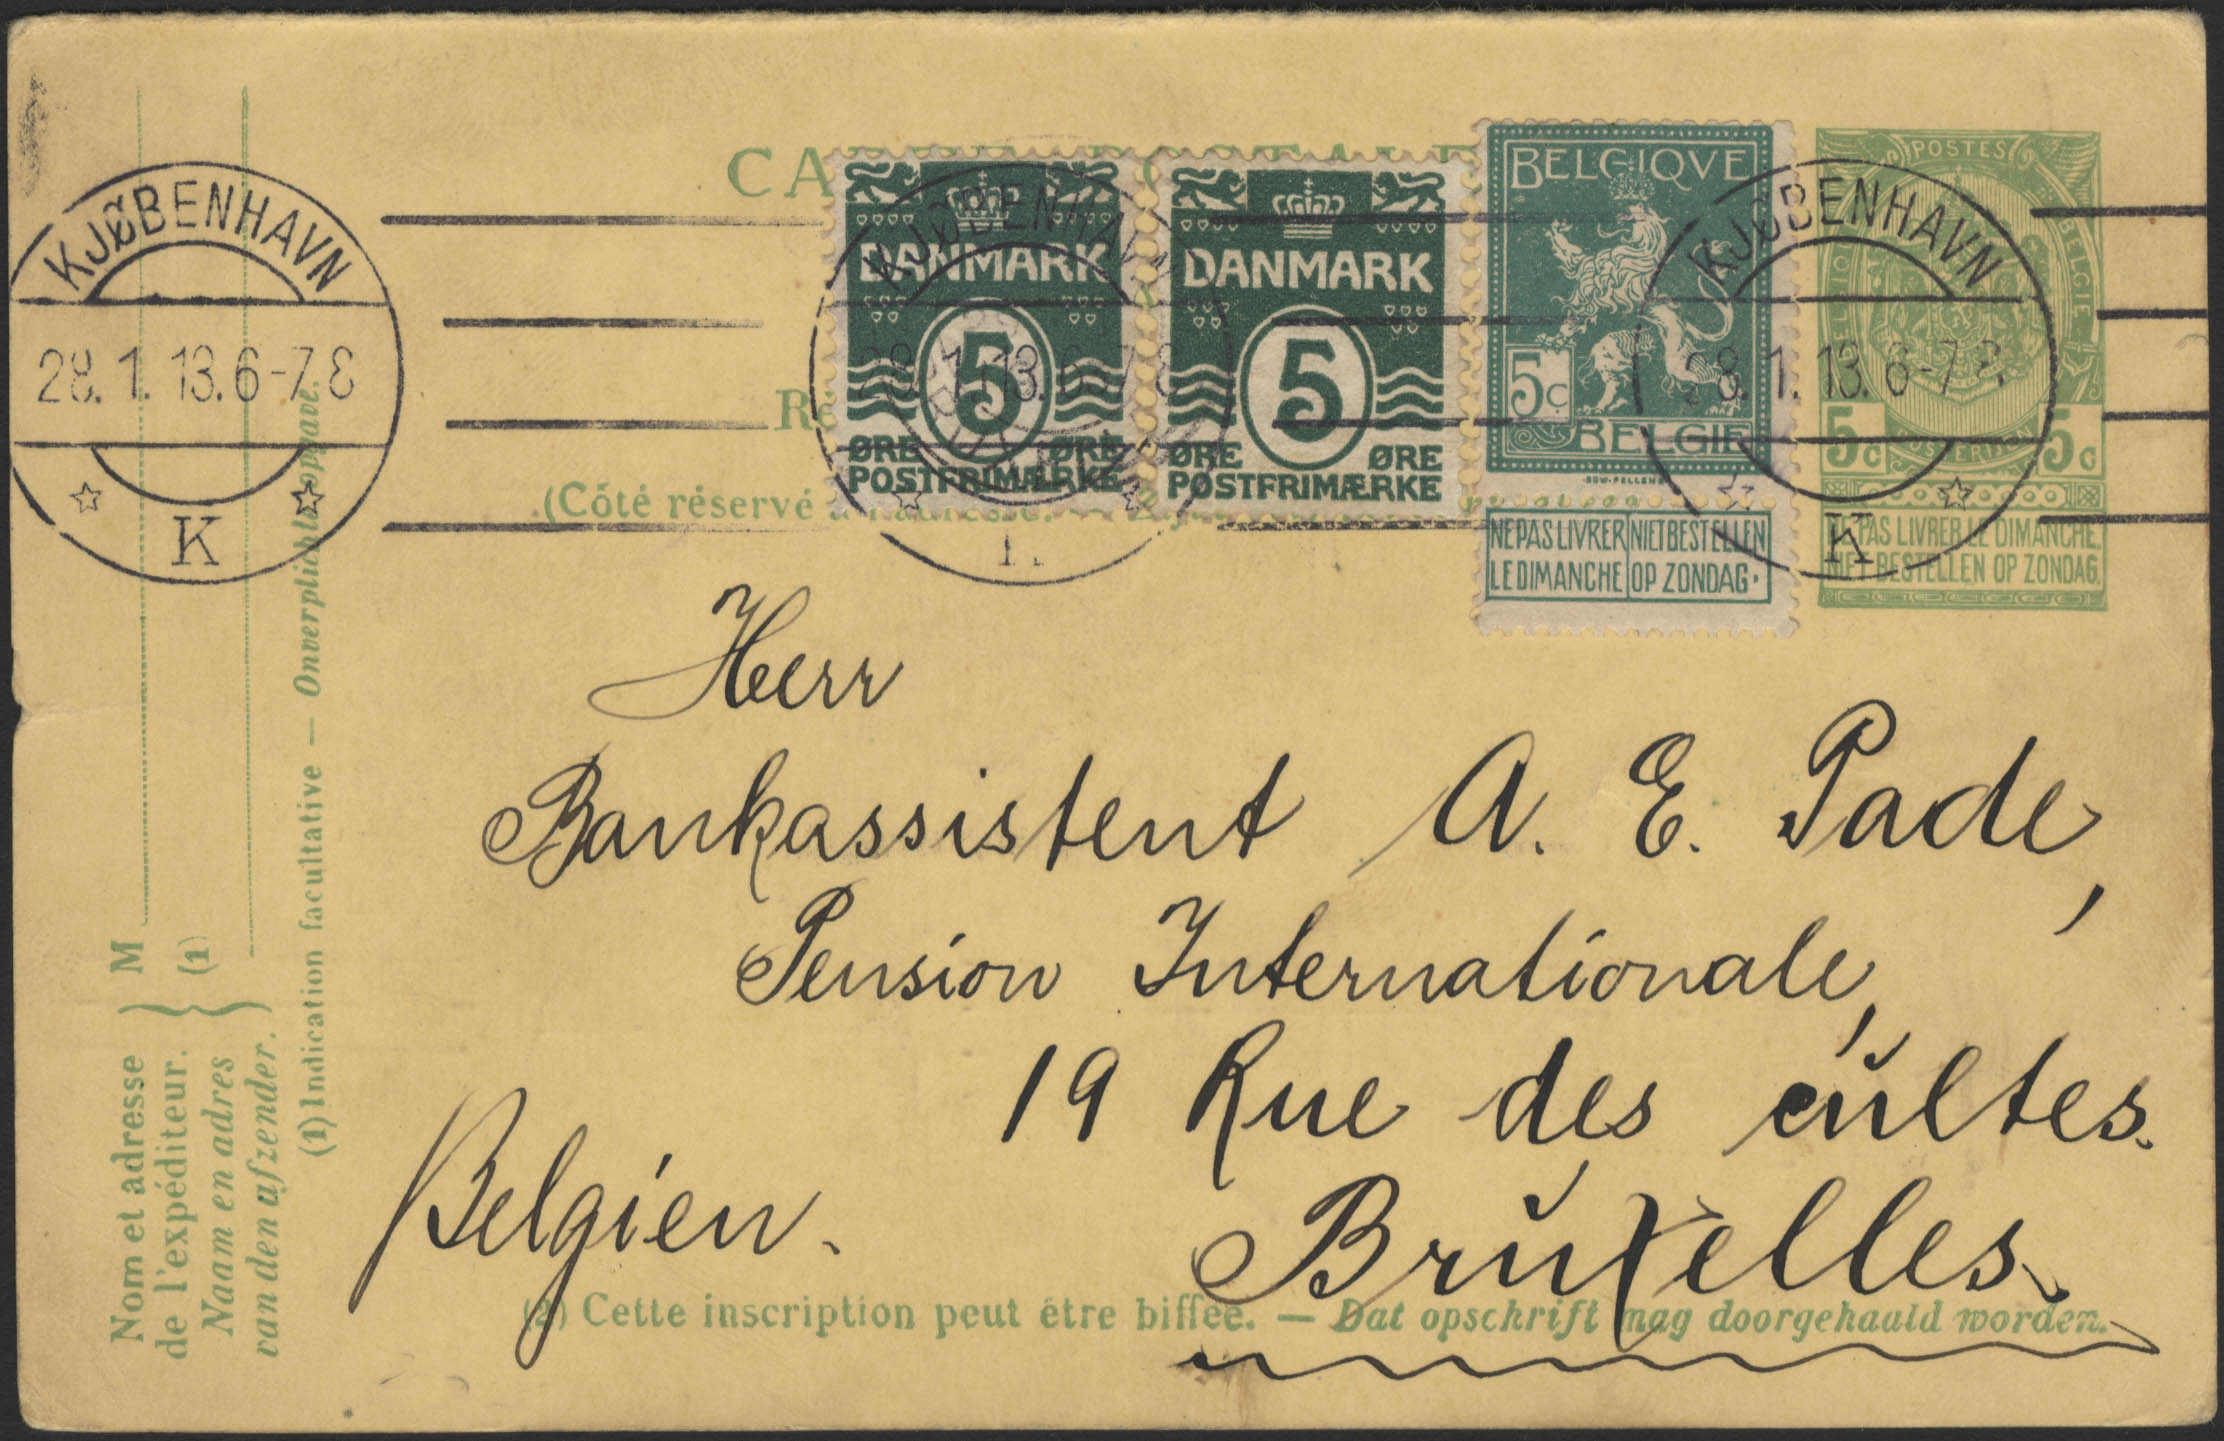 KJØBENHAVN
28. 1. 13. 6-7 E
K
DANMARK
5
ØRE ØRE
POSTFRIMÆRKE
DANMARK
5
ØRE ØRE
POSTFRIMÆRKE
BELGIQVE
5c
BELGIE
NE PAS LIVRER NIET BESTELLEN
LE DIMANCHE OP ZONDAG.
POSTES
BELGIE
5c 5c
NE PAS LIVRER LE DIMANCHE.
NIET BESTELLEN OP ZONDAG.
KJØBENHAVN
28. 1. 13. 6-7
KJØBENHAVN
28. 1. 13. 6-7
K
(Côté réservé à l'adresse. —
Herr
Bankassistent A. E. Pade,
Pension Internationale,
19 Rue des cultes.
Belgien.
Bruxelles.
(2) Cette inscription peut être biffée. — Dat opschrift mag doorgehaald worden.
Nom et adresse
de l'expéditeur.
Naam en adres
van den afzender.
M
(1)
(1) Indication facultative — Onverplichte opgave.